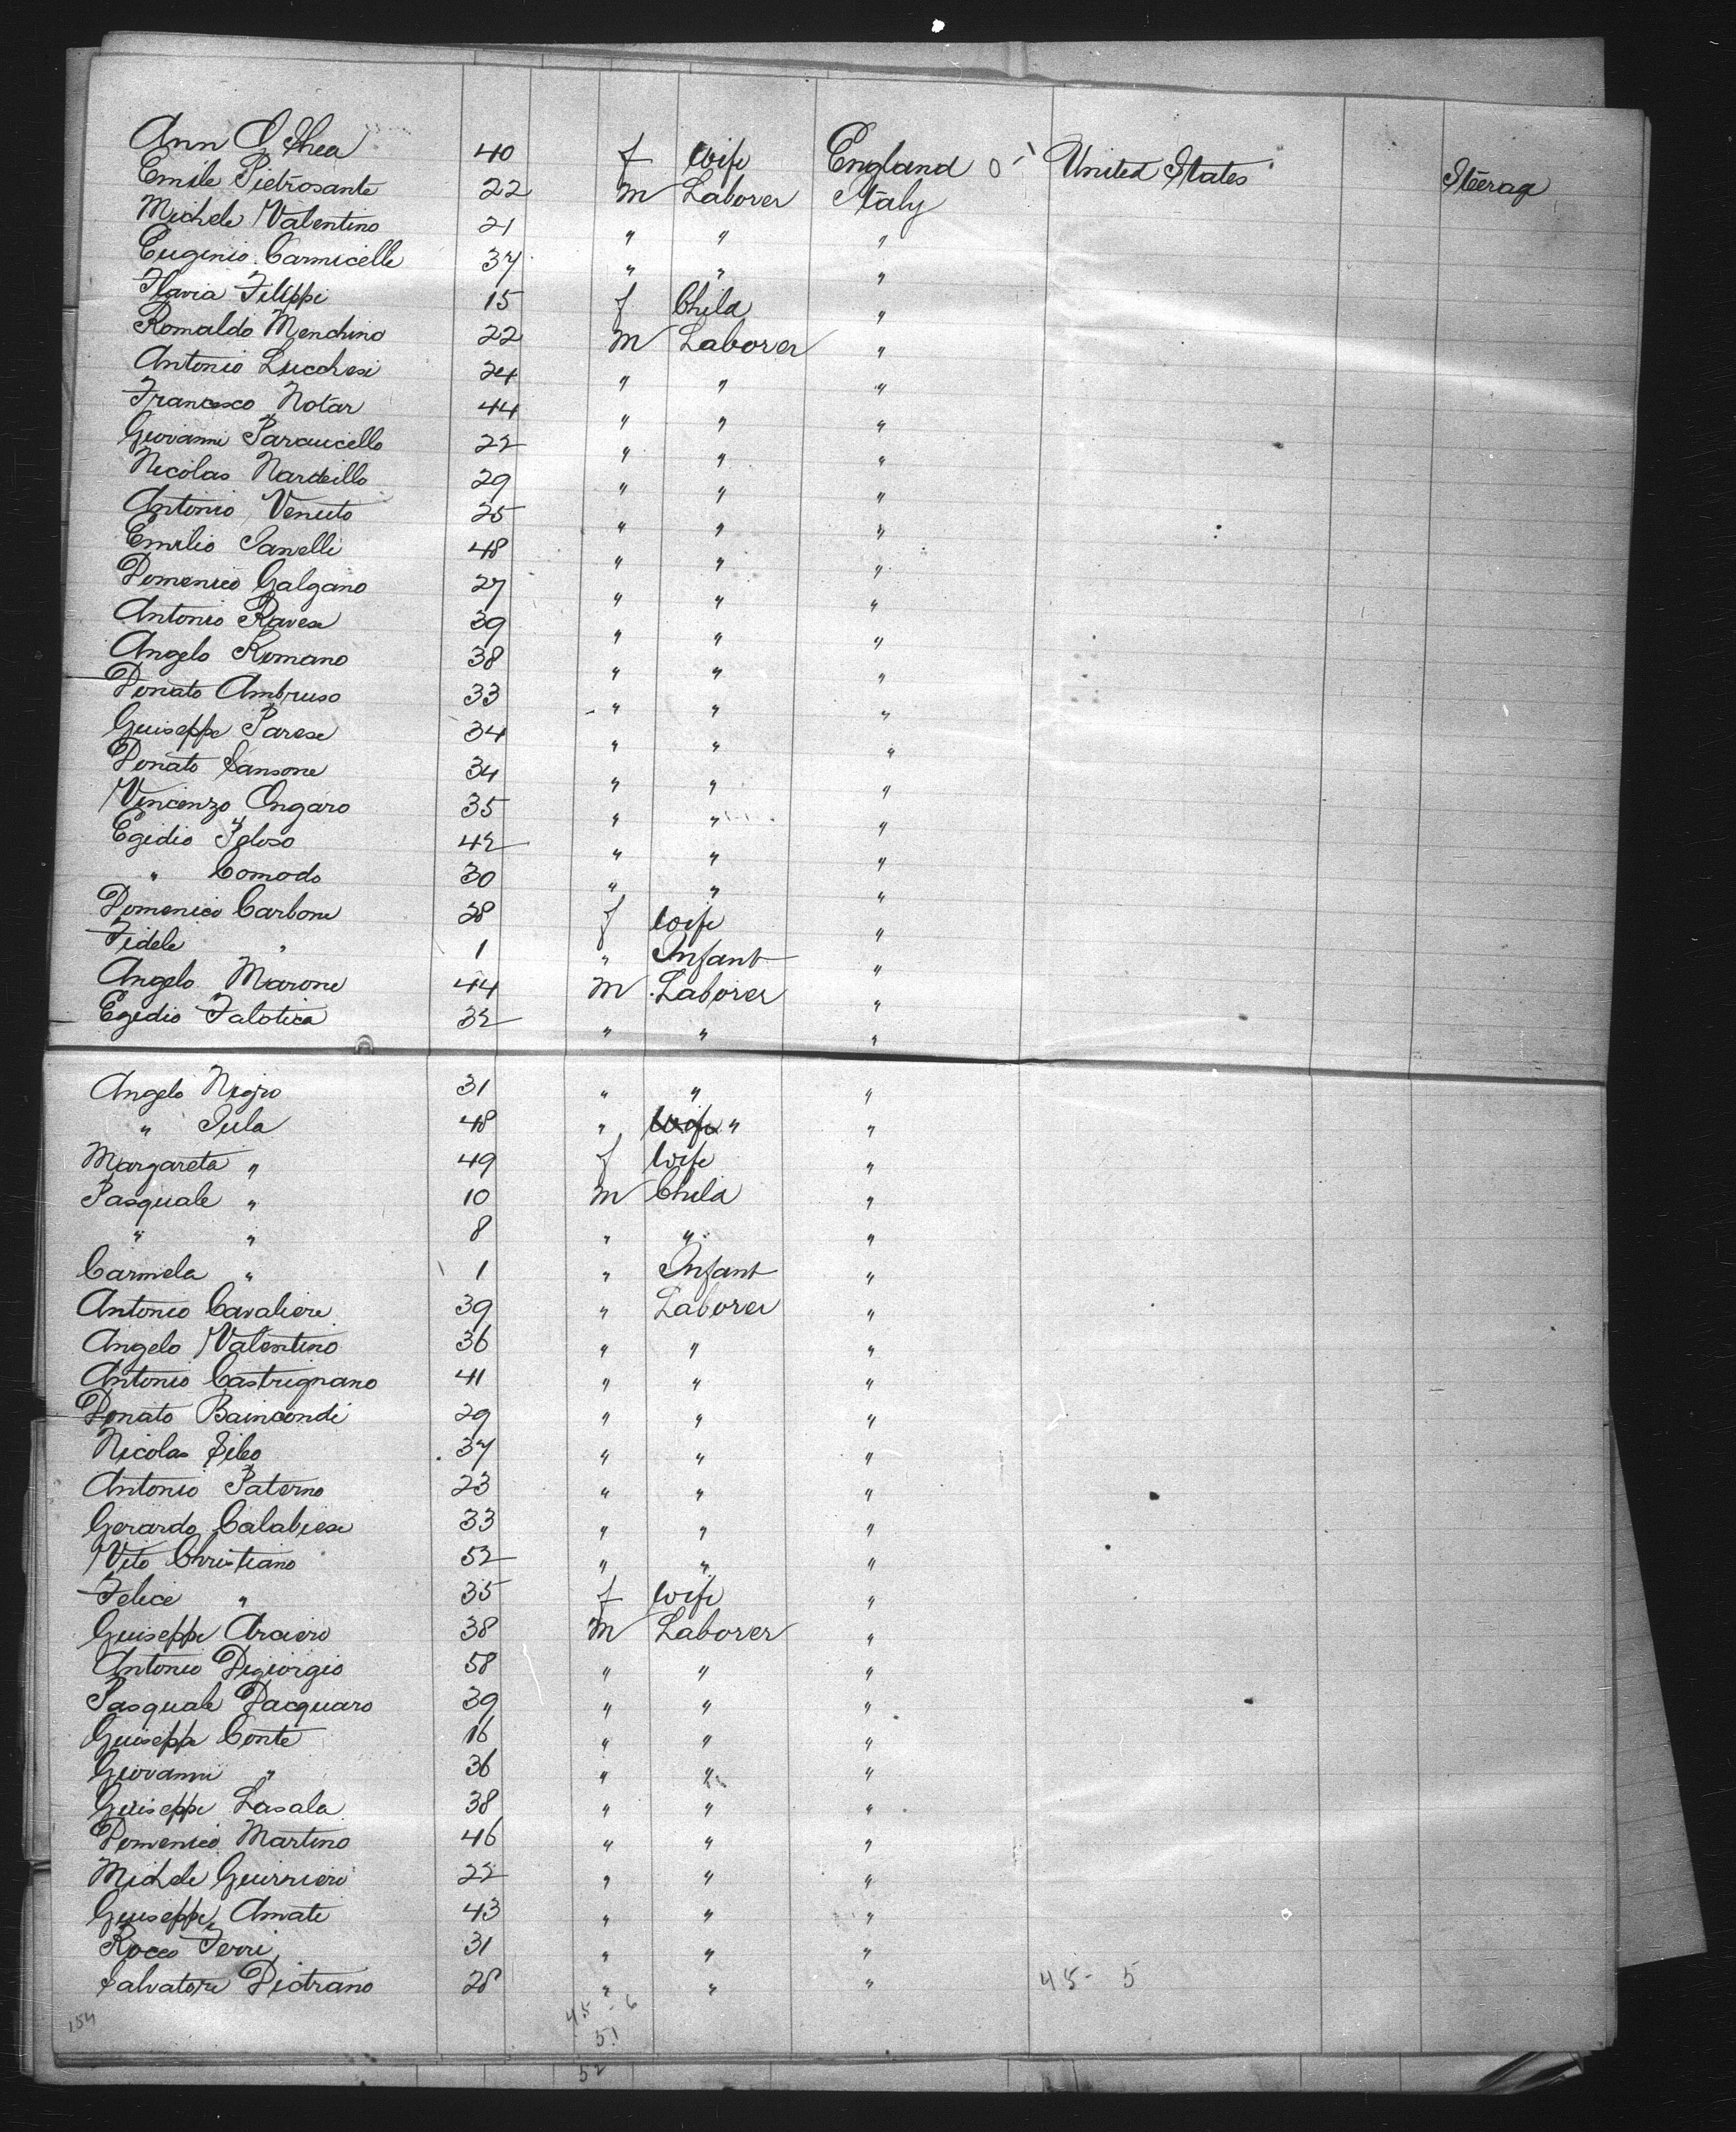 Ann O'Shea 40 f Wife England United States Steerage
Emile Pietrosante 22 m Laborer Italy
Michele Valentino 21 " " "
Eugenio Carmicelle 37 " " "
Flavia Filippi 15 f Child "
Romaldo Menchino 22 m Laborer "
Antonio Lucchesi 24 " " "
Francesco Notar 44 " " "
Giovanni Paraucello 22 " " "
Nicolas Nardeillo 29 " " "
Antonio Venuto 25 " " "
Emilio Ianelli 48 " " "
Domenico Galgano 27 " " "
Antonio Ravese 39 " " "
Angelo Romano 38 " " "
Donato Ambruso 33 " " "
Guiseppe Parese 34 " " "
Donato Sansone 34 " " "
Vincenzo Ongaro 35 " " "
Egidio Peloso 42 " " "
" Comodo 30 " " "
Domenico Carbone 28 f Wife "
Fidele " 1 " Infant "
Angelo Marone 44 m Laborer "
Egidio Falotica 32 " " "
Angelo Nigro 31 " " "
" Tula 48 " Wife " "
Margareta " 49 f Wife "
Pasquale " 10 m Child "
" " 8 " " "
Carmela " 1 " Infant "
Antonio Cavaliere 39 " Laborer "
Angelo Valentino 36 " " "
Antonio Castrignano 41 " " "
Donato Baincondi 29 " " "
Nicolas Sileo 37 " " "
Antonio Paterno 23 " " "
Gerardo Calabrese 33 " " "
Vito Christiano 52 " " "
Felice " 35 f Wife "
Guiseppe Arciero 38 m Laborer "
Antonio Digiorgio 58 " " "
Pasquale Dacquaro 39 " " "
Guiseppe Conte 16 " " "
Giovanni " 36 " " "
Guiseppe Lasala 38 " " "
Domenico Martino 46 " " "
Michele Guirrieri 22 " " "
Guiseppe Amati 43 " " "
Rocco Ferri 31 " " "
Salvatore Dictrano 28 " " " 45- 5
154 45 - 6
51
52